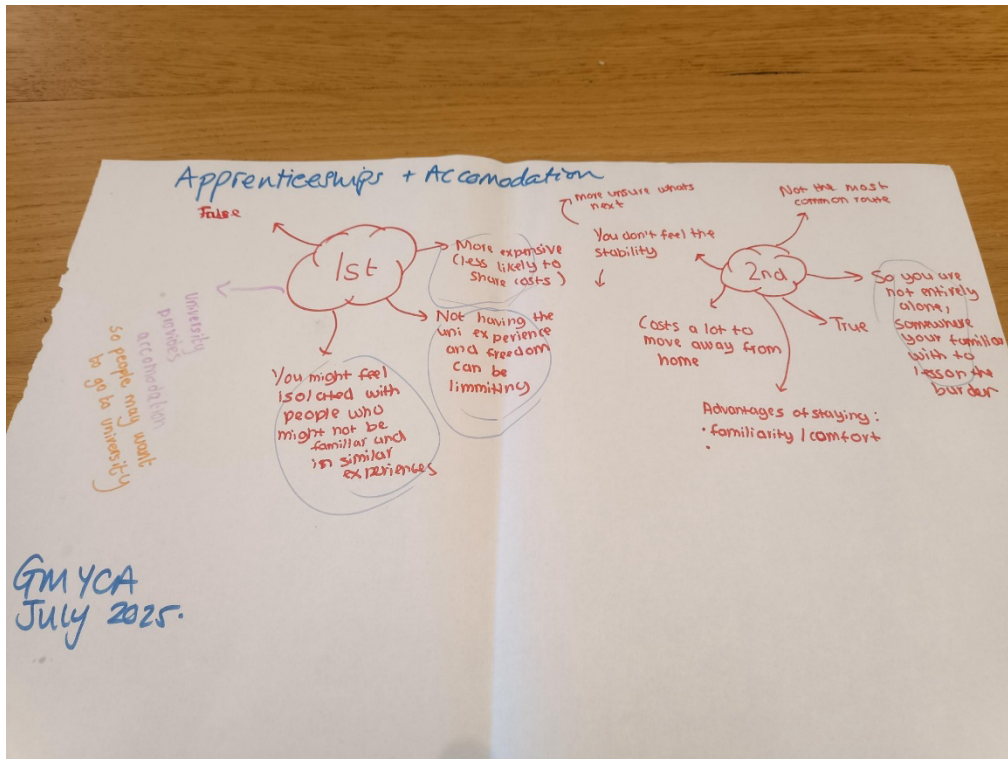 Apprenticeships + Accomodation
False
1st
More expensive
(less likely to
share costs)
Not having the
uni experience
and freedom
can be
limmiting
You might feel
isolated with
people who
might not be
familiar and
in similar
experiences
University
• provides
accomodation
so people may want
to go to university
more unsure whats
next
You don't feel the
stability
2nd
Not the most
common route
So you are
not entirely
alone,
somewhere
your familiar
with to
lesson the
burder
True
Costs a lot to
move away from
home
Advantages of staying:
• familiarity / comfort
•
GMYCA
July 2025.